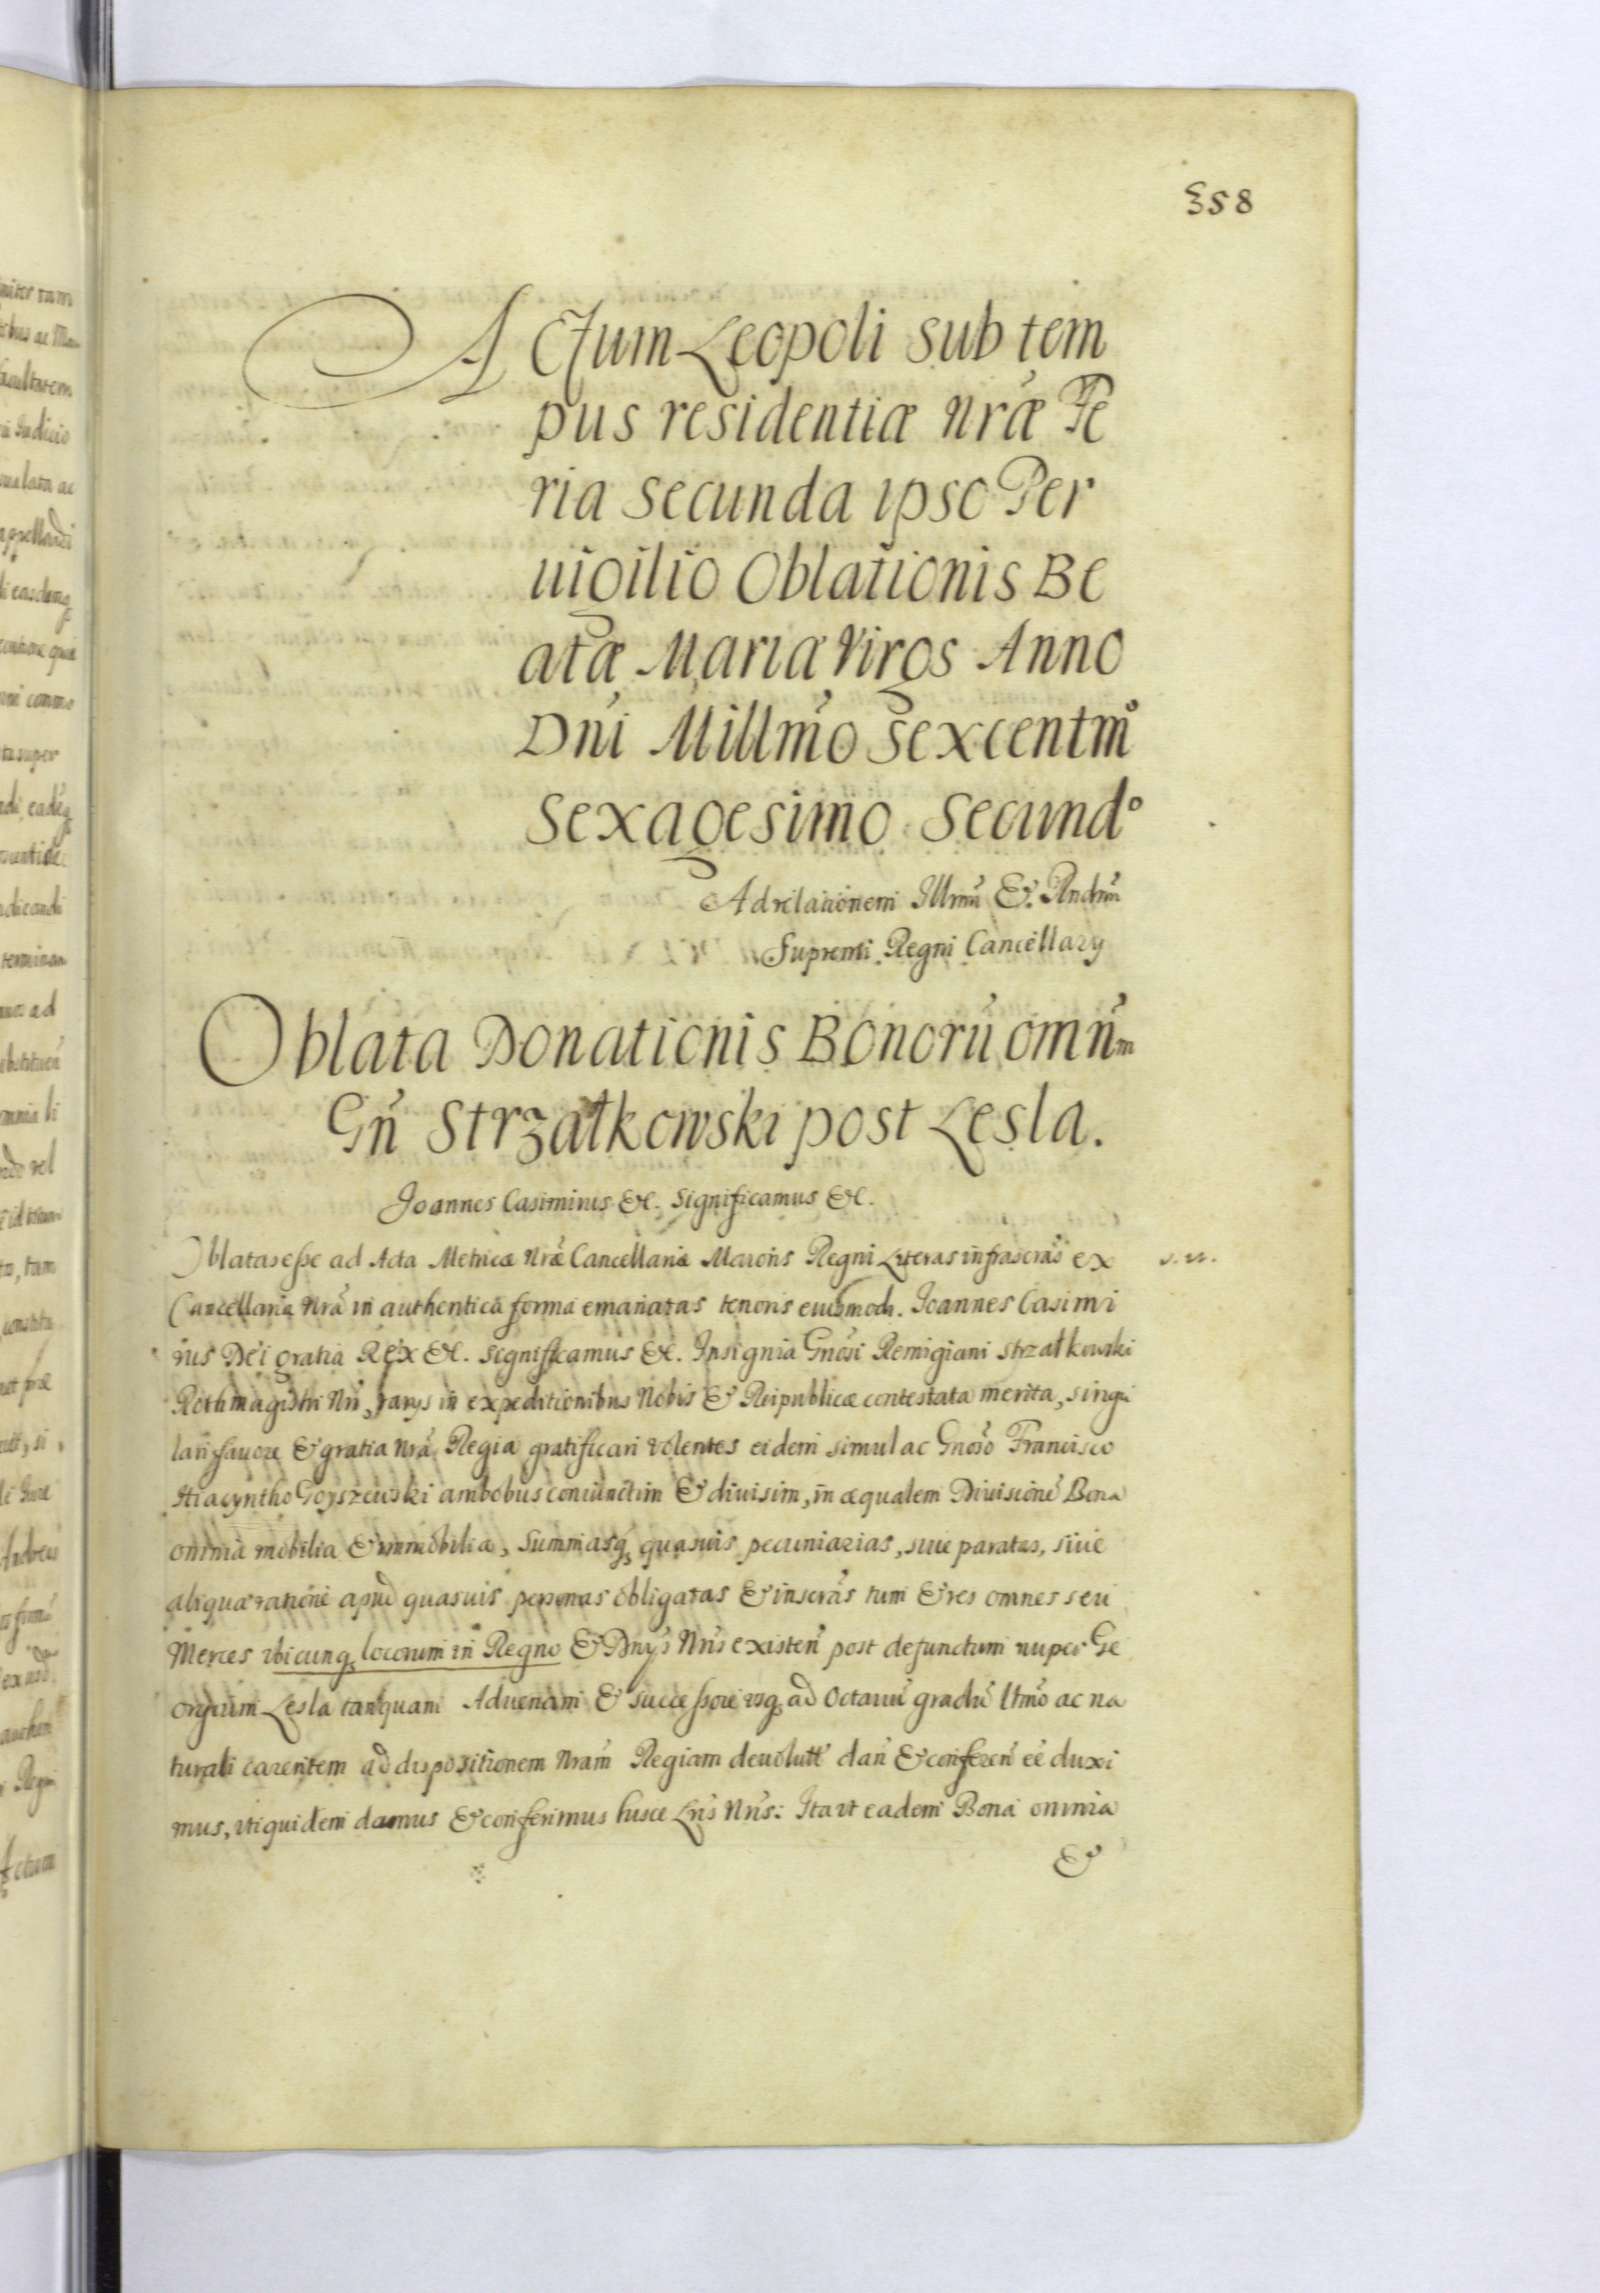 358
Actum Leopoli sub tem
pus residentiæ nr̃æ Fe
ria Secunda ipso Per
uigilio Oblationis Be
atæ Mariæ Virgs Anno
Dni Millmo Sexcentmo
Sexagesimo Secundo
Ad relationem Illrmi &
Supremi Regni Cancellary
Oblata Donationis Bonorũ omnium
Gñ Strzałkowski post Lesla.
Joannes Casimirus &c. Significamus &c.
Oblatas esse ad Acta Metricæ nr̃æ Cancellariæ Maioris Regni Literas infrascras ex
Cancellaria nr̃a in authentica forma emanatas tenoris eiusmodi. Joannes Casimi
rus Dei gratia Rex &c. significamus &c. Insignia Gnosi Remigiani Strzałkowski
Rothmagistri Nri, varys in expeditionibus Nobis & Reipublicæ contestata merita, singu
lari fauore & gratia nr̃a Regia gratificari volentes eidem simul ac Gnoso Francisco
Hiacyntho Goyszewski ambobus coniunctim & diuisim, in æqualem Diuisionẽ Bona
omnia mobilia & immobilia, Summasq quasuis pecuniarias, siue paratas, siue
aliqua ratione apud quasuis personas obligatas & inscras tum & res omnes seu
Merces vbicunq locorum in Regno & Dnys Nris existeñ post defunctum nuper Ge
orgium Lesla tanquam Aduenam & successore vsq ad Octauũ gradũ ltmo ac na
turali carentem ad dispositionem nram Regiam deuolutt dañ & confereñ eẽ duxi
mus, vti quidem damus & conferimus hisce Lris Nris: Ita vt eadem Bona omnia
&